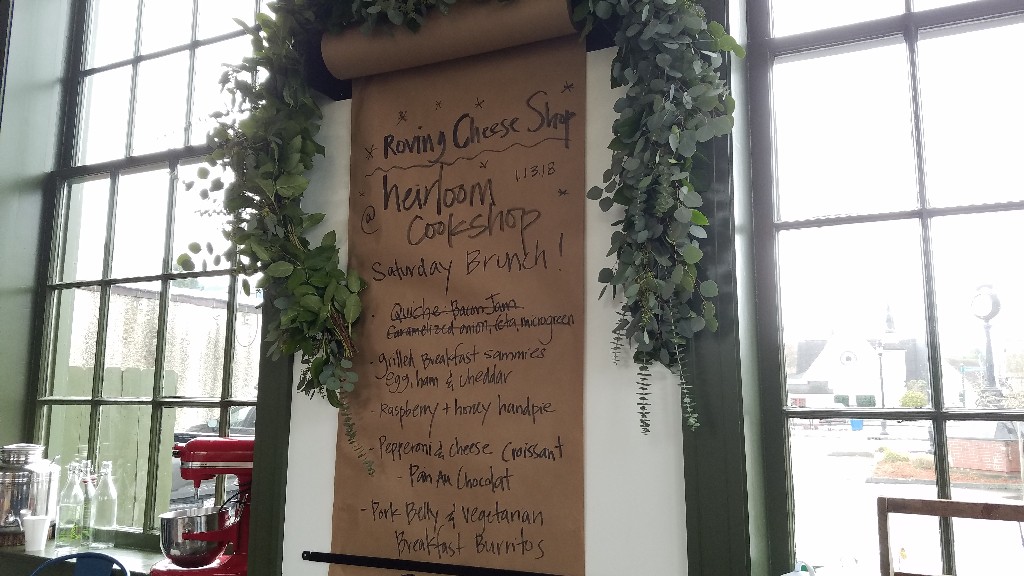 Roving Cheese Shop
1.13.18
@ heirloom
Cookshop
Saturday Brunch!
· Quiche - Bacon Jam
Caramelized onion, feta, microgreen
- grilled Breakfast sammies
egg, ham & cheddar
- Raspberry + honey handpie
- Pepperoni & cheese Croissant
- Pan Au Chocolat
- Pork Belly & vegetarian
Breakfast Burritos